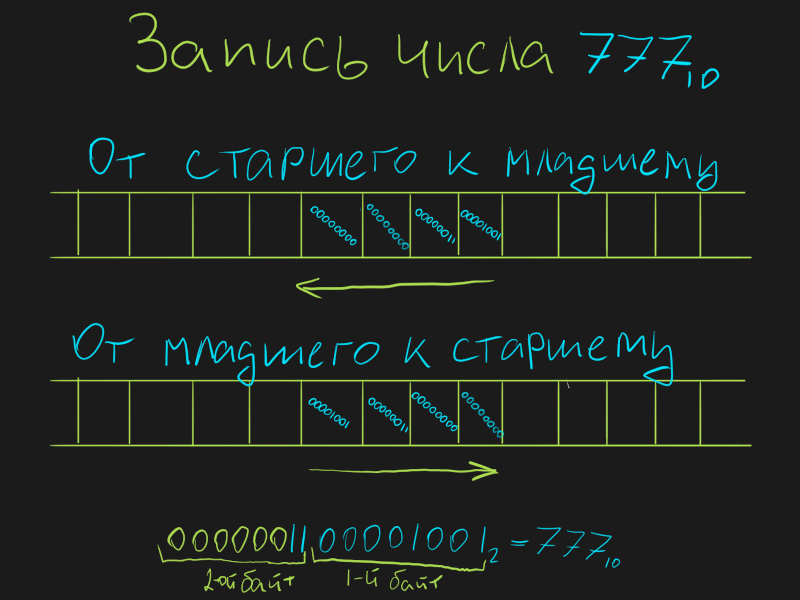 Запись числа 777₁₀
От старшего к младшему
00000000 00000000 00000011 00001001
От младшего к старшему
00001001 00000011 00000000 00000000
00000011 00001001₂ = 777₁₀
2-ой байт 1-й байт